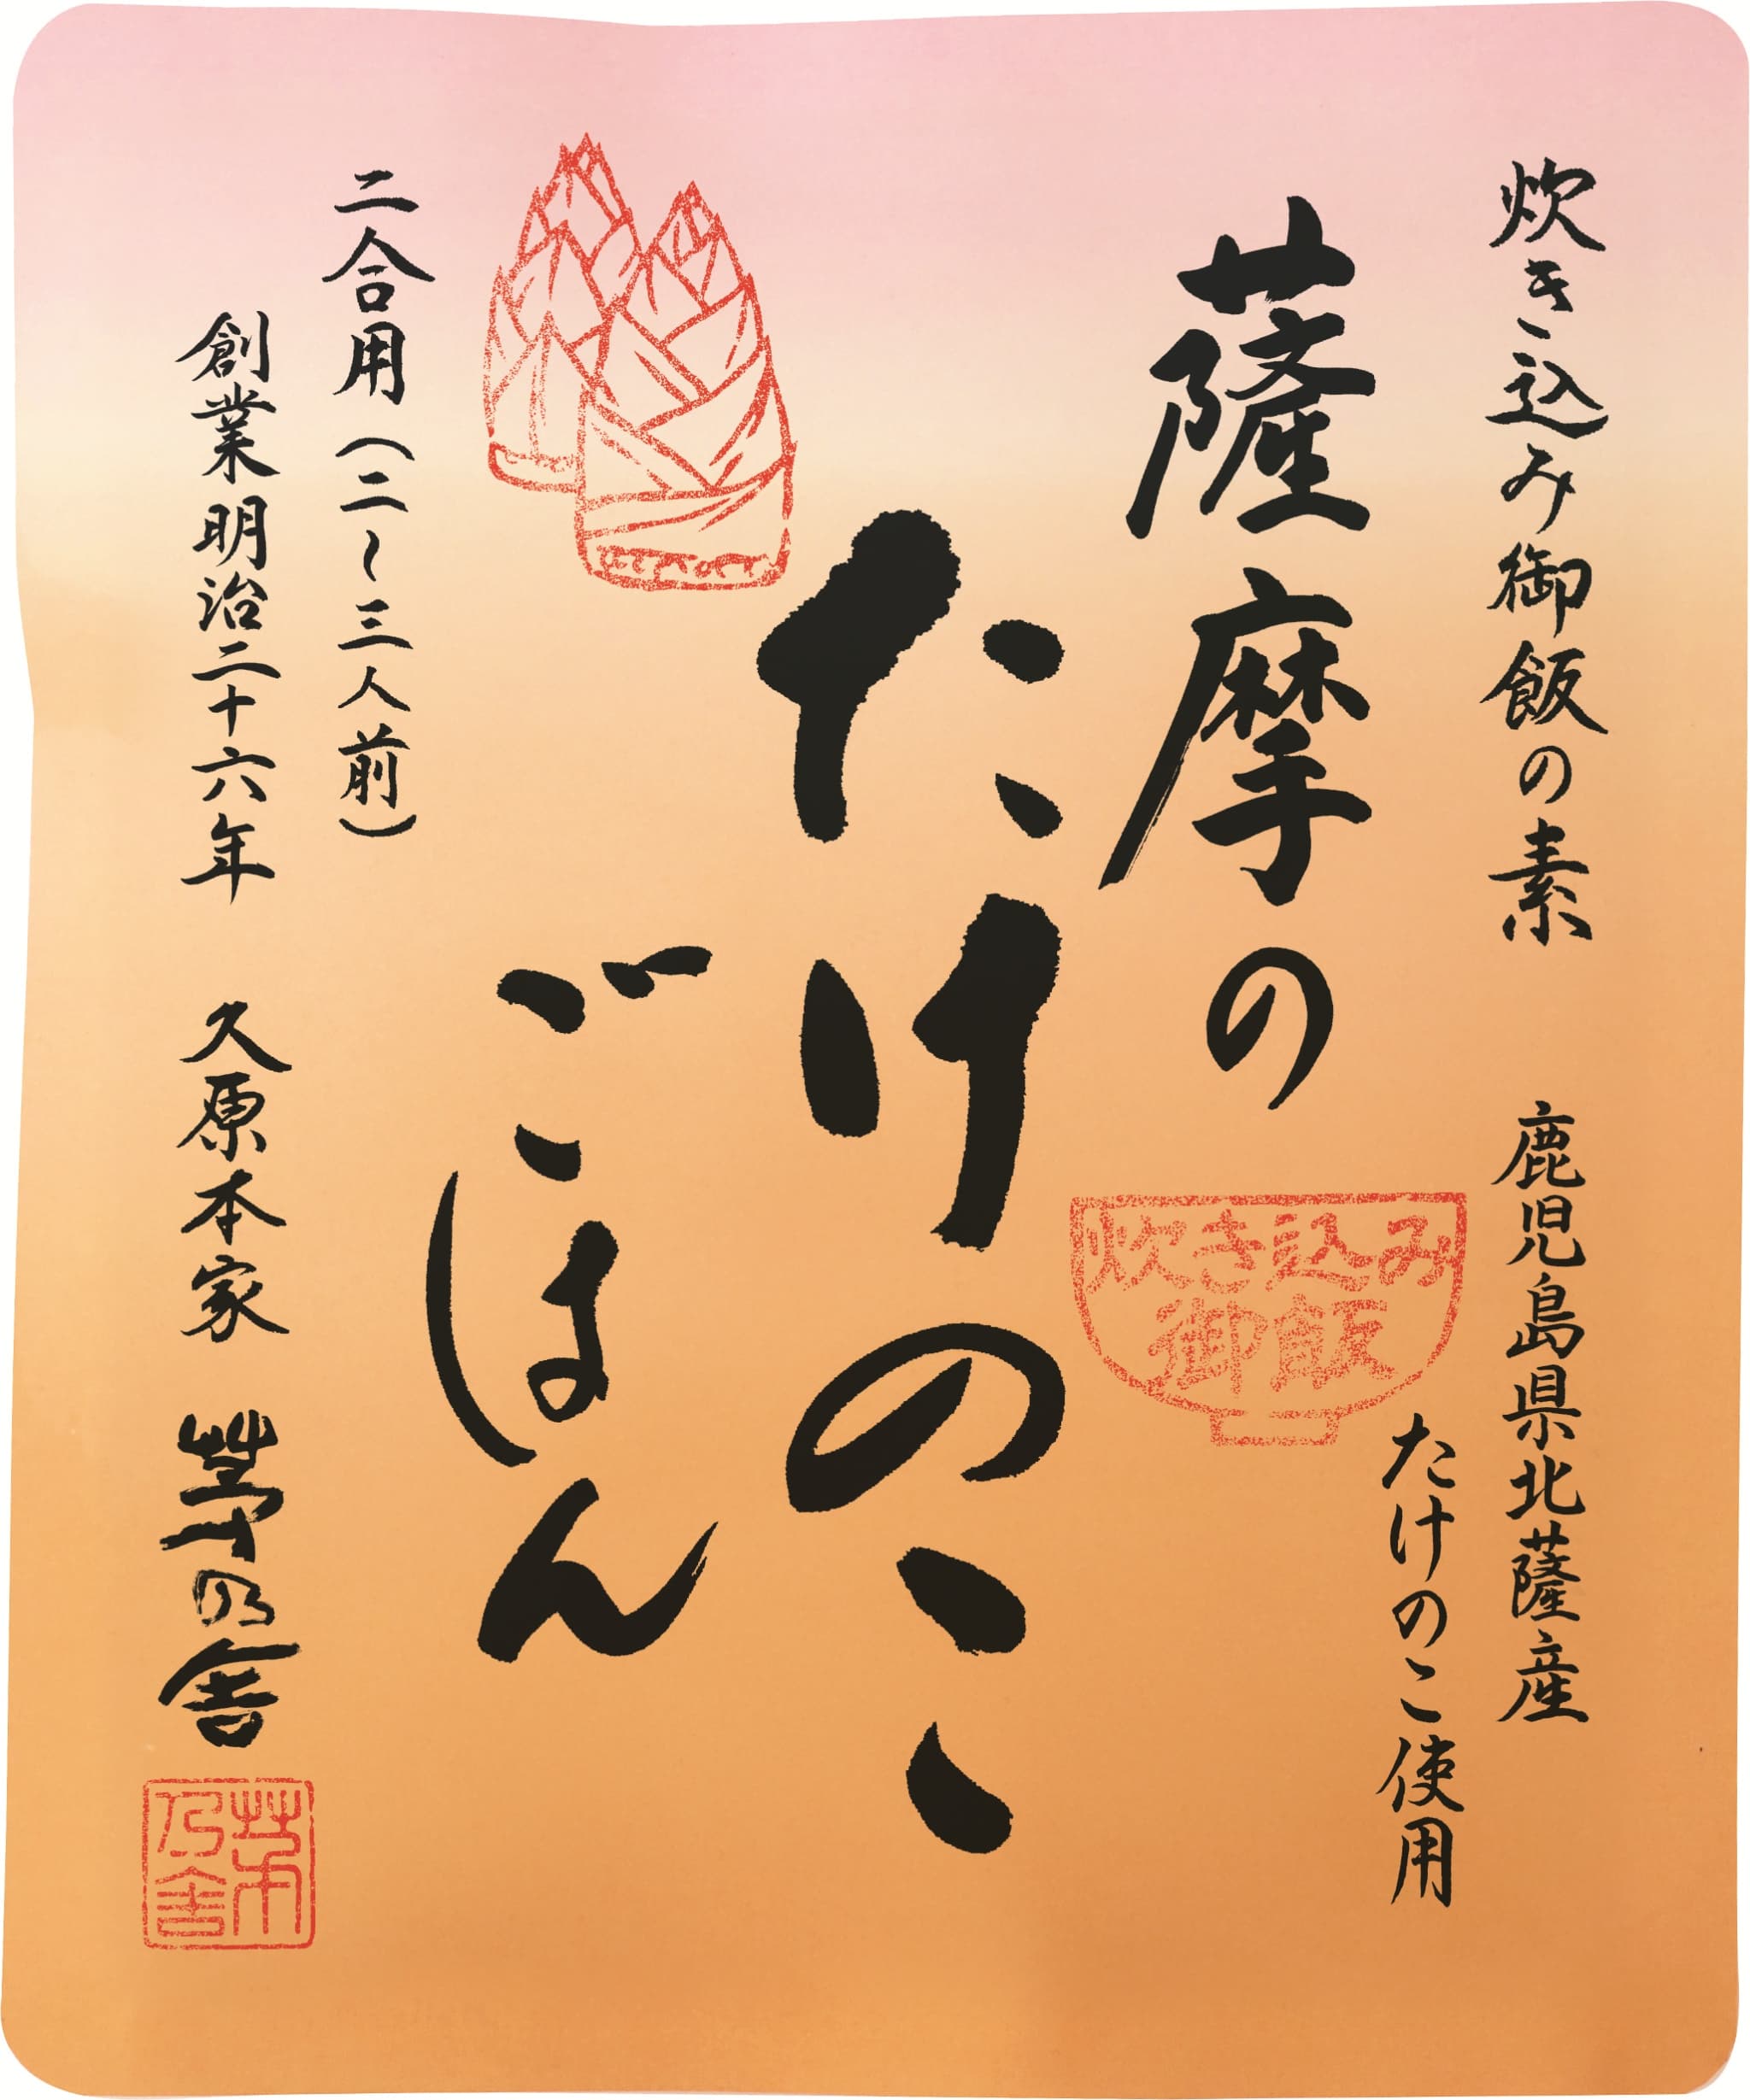 炊き込み御飯の素　鹿児島県北薩産
たけのこ使用
薩摩の
炊き込み
御飯
たけのこ
ごはん
二合用（二〜三人前）
創業明治二十六年　久原本家　茅乃舎
茅乃舎